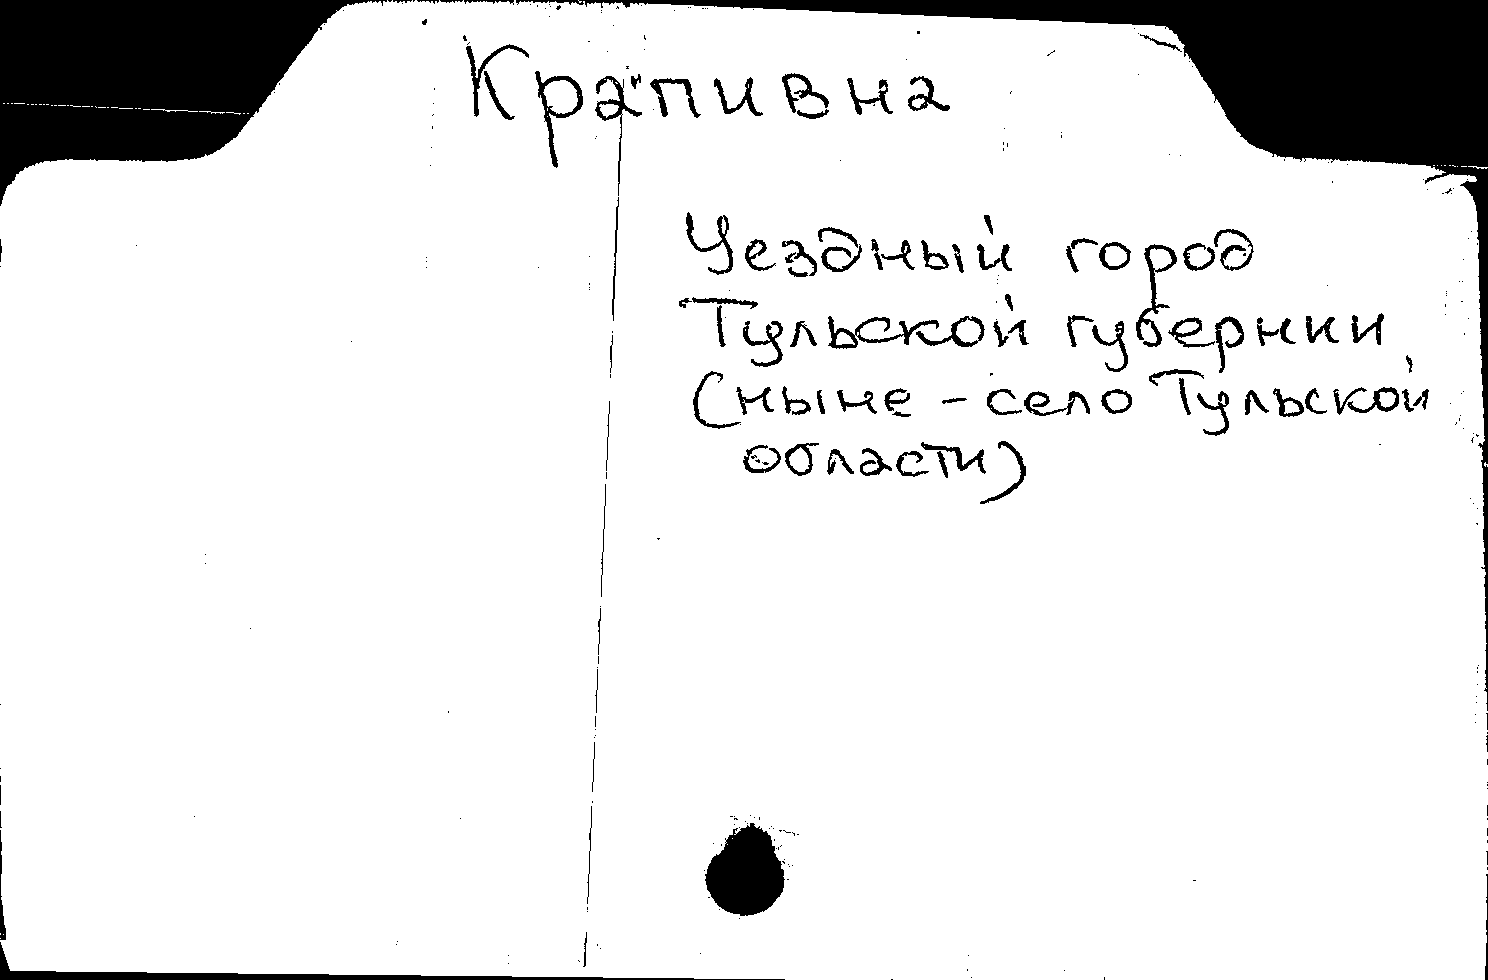 Крапивна
Уездный город
Тульской губернии
(ныне - село Тульской
области)